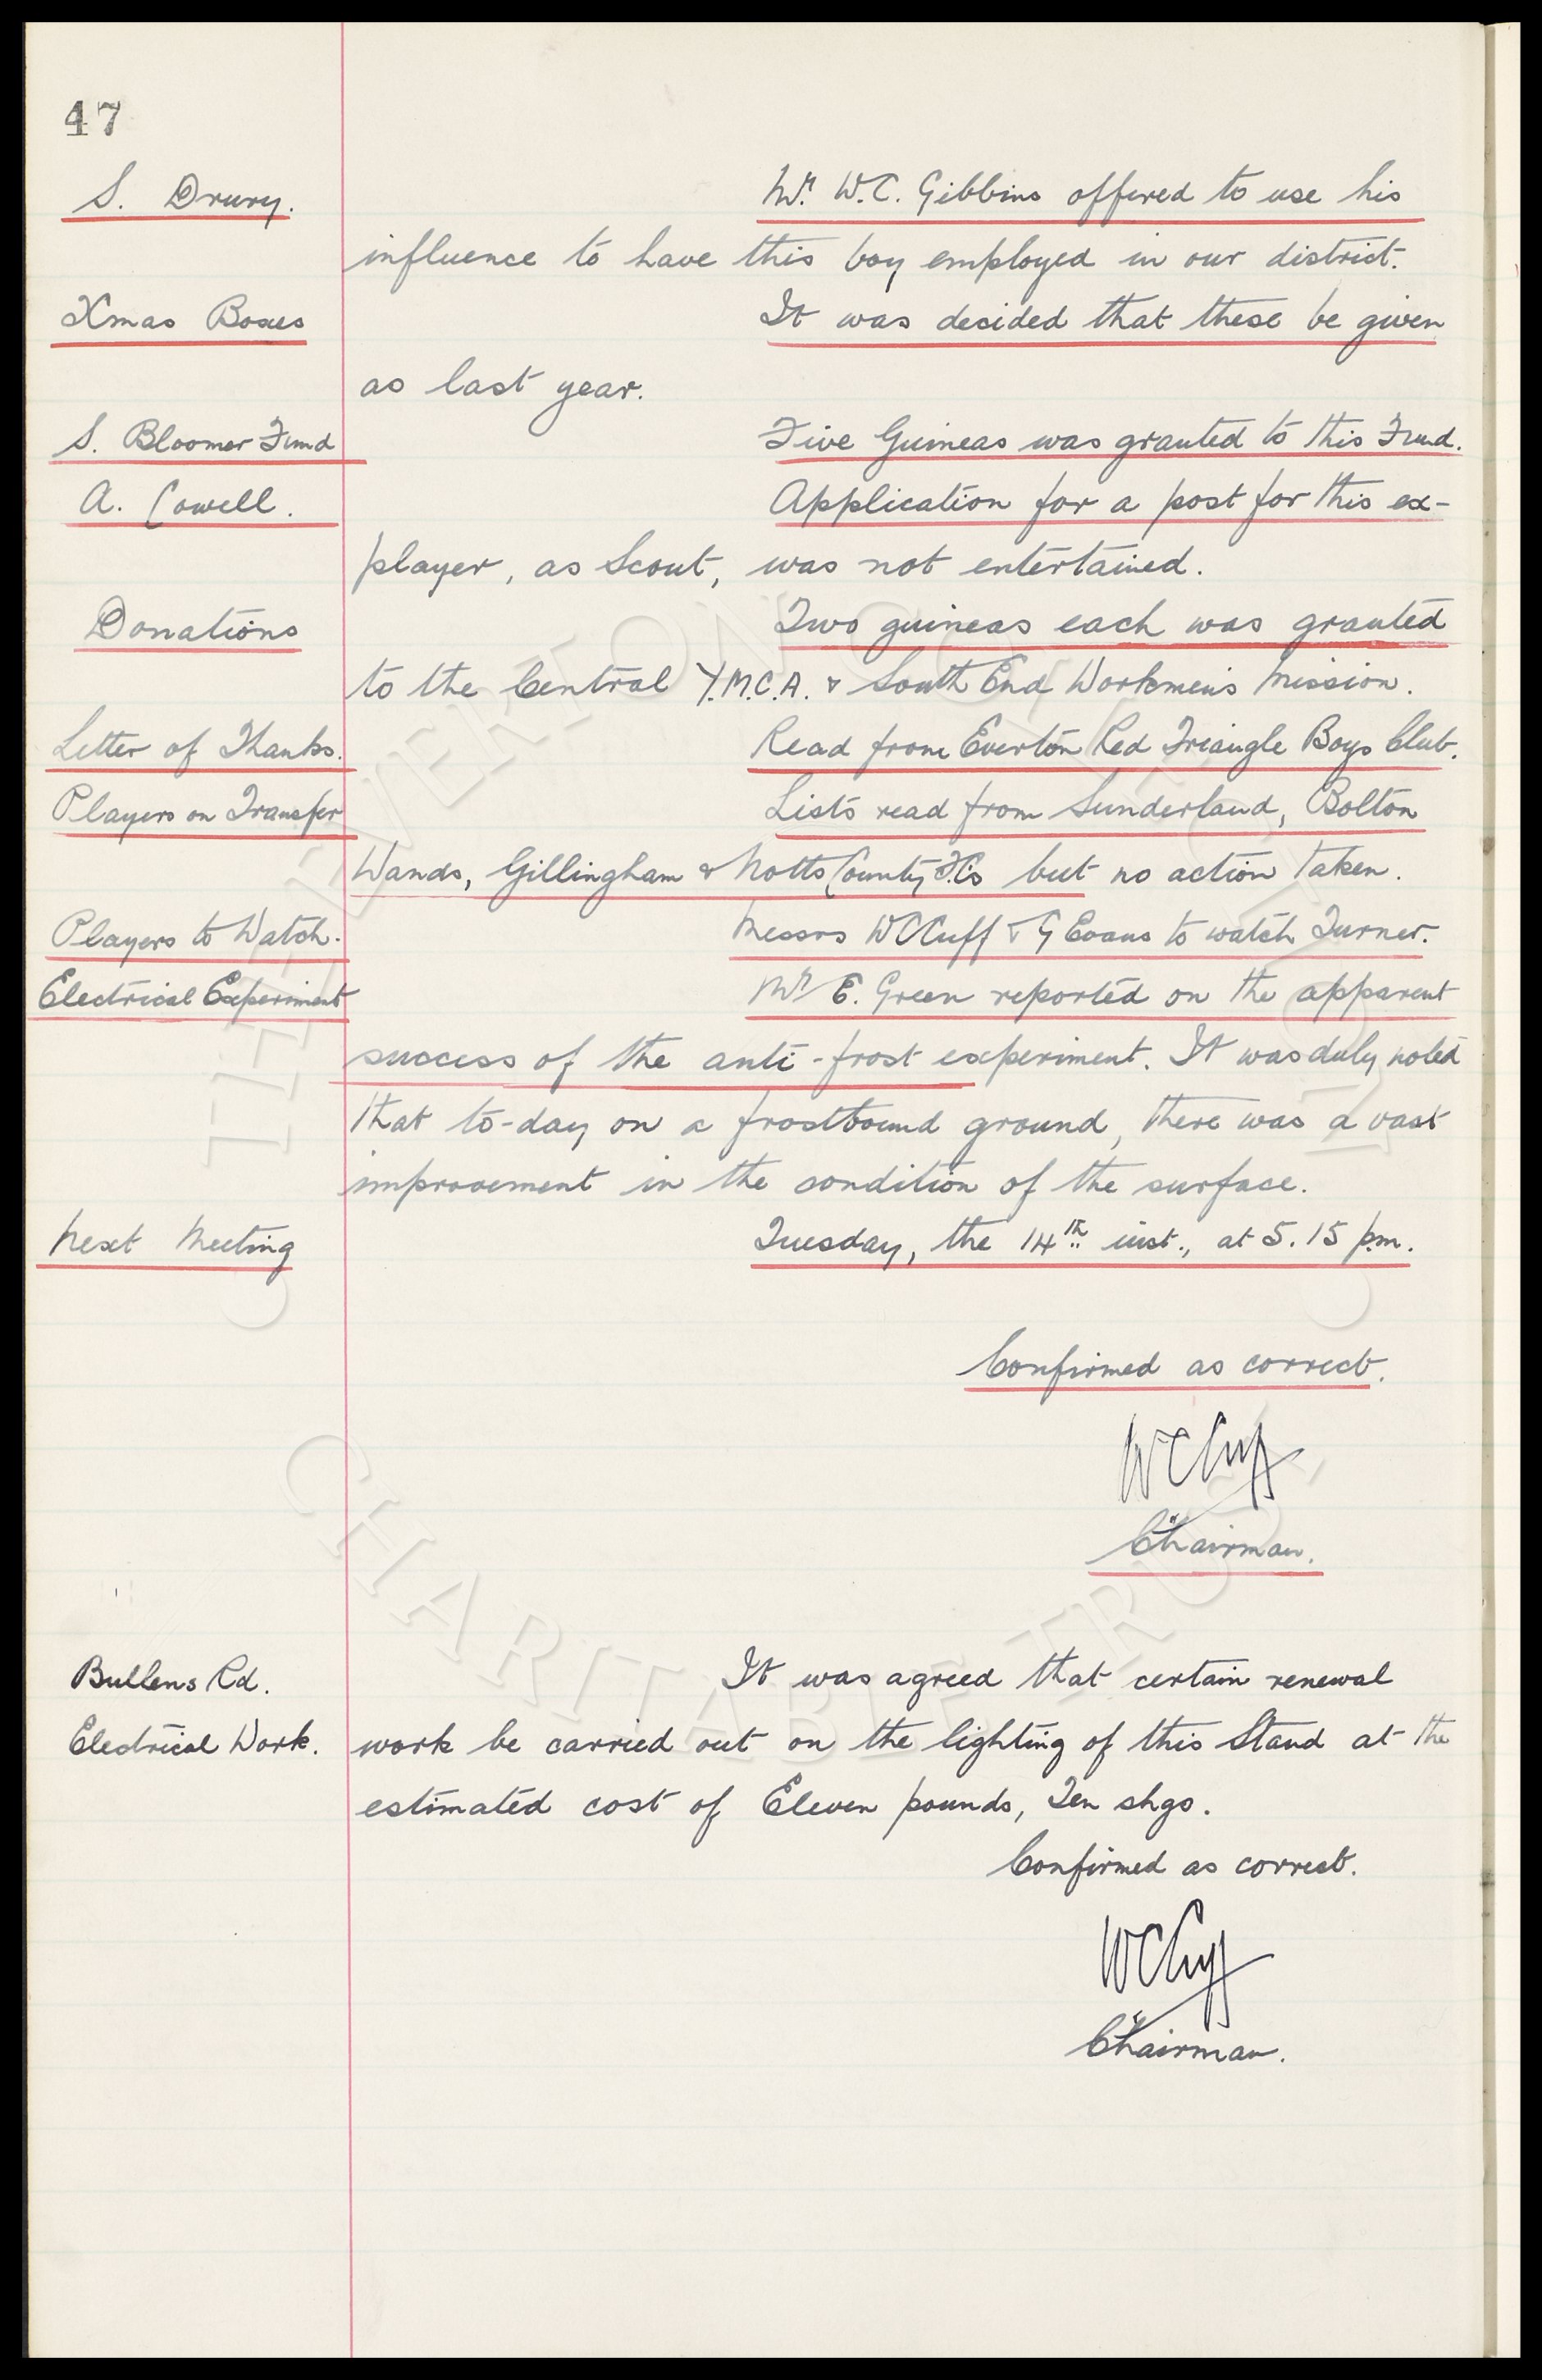 47
S. Drury. Mr. W.C. Gibbins offered to use his
influence to have this boy employed in our district.
Xmas Boxes It was decided that these be given
as last year.
S. Bloomer Fund Five Guineas was granted to this Fund.
A. Cowell. Application for a post for this ex-
player, as Scout, was not entertained.
Donations Two guineas each was granted
to the Central Y.M.C.A. & South End Workmens Mission.
Letter of Thanks. Read from Everton Red Triangle Boys Club.
Players on Transfer Lists read from Sunderland, Bolton
Wands, Gillingham & Notts County F.C's but no action taken.
Players to Watch. Messrs W C Cuff & G Evans to watch Turner.
Electrical Experiment Mr E. Green reported on the apparent
success of the anti-frost experiment. It was duly noted
that to-day on a frostbound ground, there was a vast
improvement in the condition of the surface.
Next Meeting Tuesday, the 14th inst., at 5.15 p.m.
Confirmed as correct.
W C Cuff
Chairman.
Bullens Rd. It was agreed that certain renewal
Electrical Work. work be carried out on the lighting of this Stand at the
estimated cost of Eleven pounds, Ten shgs.
Confirmed as correct.
W C Cuff
Chairman.